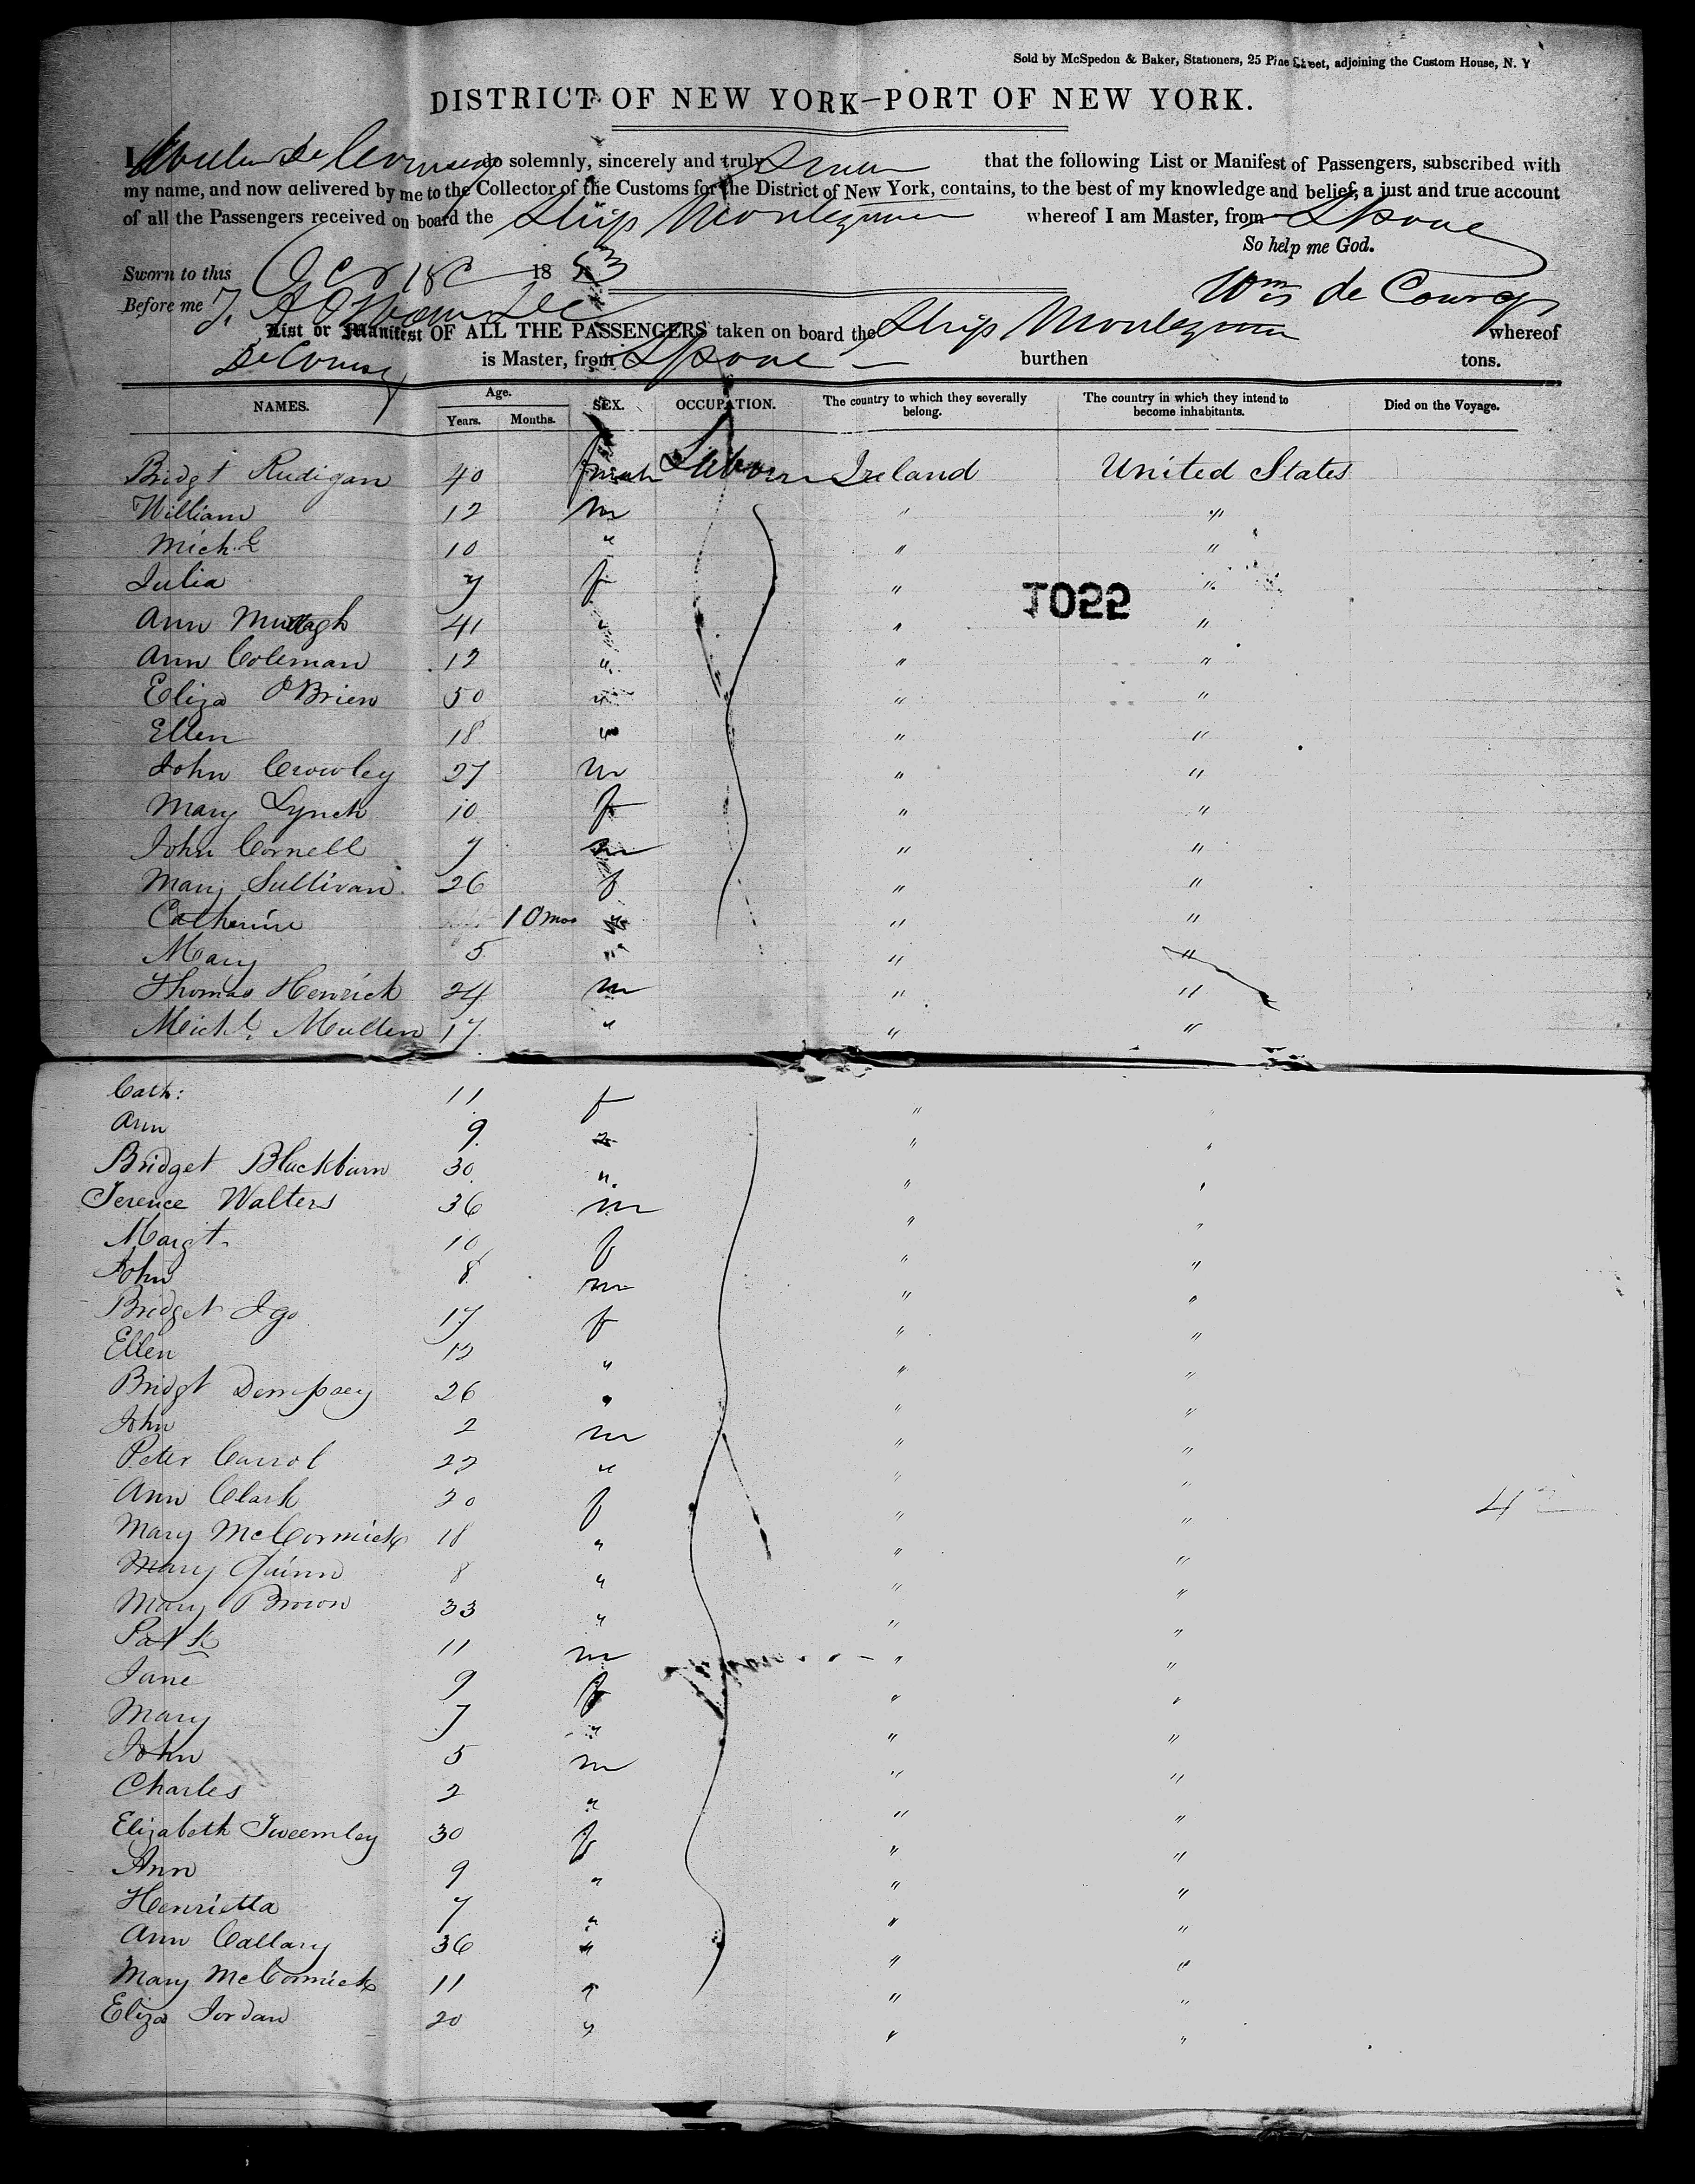 Sold by McSpedon & Baker, Stationers, 25 Pine Street, adjoining the Custom House, N. Y
DISTRICT OF NEW YORK—PORT OF NEW YORK.
I, William De Courcey do solemnly, sincerely and truly Swear that the following List or Manifest of Passengers, subscribed with
my name, and now delivered by me to the Collector of the Customs for the District of New York, contains, to the best of my knowledge and belief, a just and true account
of all the Passengers received on board the Ship Montezuma whereof I am Master, from Lpool
So help me God.
Sworn to this Oct 18 1853
Before me Wm de Courcy
List or Manifest OF ALL THE PASSENGERS taken on board the Ship Montezuma whereof
De Courcy is Master, from Lpool burthen tons.
NAMES. Age. Years. Months. SEX. OCCUPATION. The country to which they severally belong. The country in which they intend to become inhabitants. Died on the Voyage.
Bridgt Rudigan 40 female Ireland United States
William 12 m " "
Michl 10 " " "
Julia 7 f " "
1022
Ann Murtagh 41 " " "
Ann Coleman 12 " " "
Eliza O'Brien 50 " " "
Ellen 18 " " "
John Crowley 27 m " "
Mary Lynch 10 f " "
John Cornell 7 m " "
Mary Sullivan 26 f " "
Catherine 10 mos " " "
Mary 5 " " "
Thomas Henrick 24 m " "
Michl. Mullen 17 " " "
Cath: 11 f " "
Ann 9 " " "
Bridget Blackburn 30 " " "
Terence Walters 36 m " "
Margt. 10 f " "
John 8 m " "
Bridget Igo 17 f " "
Ellen 12 " " "
Bridgt Dempsey 26 " " "
John 2 m " "
Peter Carrol 22 " " "
Ann Clark 20 f " "
Mary McCormick 18 " " "
Mary Quinn 8 " " "
Mary Brown 33 " " "
Patk 11 m " "
Jane 9 f " "
Mary 7 " " "
John 5 m " "
Charles 2 " " "
Elizabeth Tweemley 30 f " "
Ann 9 " " "
Henrietta 7 " " "
Ann Callary 36 " " "
Mary McCormick 11 " " "
Eliza Jordan 20 " " "